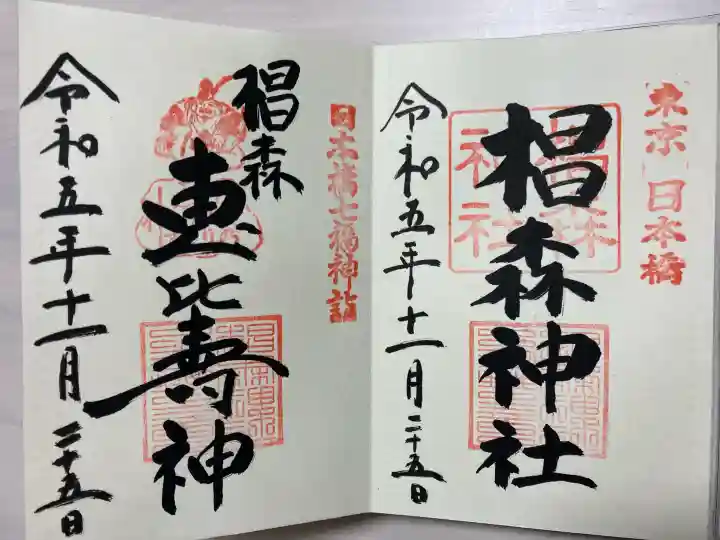 東京 日本橋
椙森神社
椙森神社
令和五年十一月二十五日
日本橋七福神詣
椙森
恵比寿神
令和五年十一月二十五日